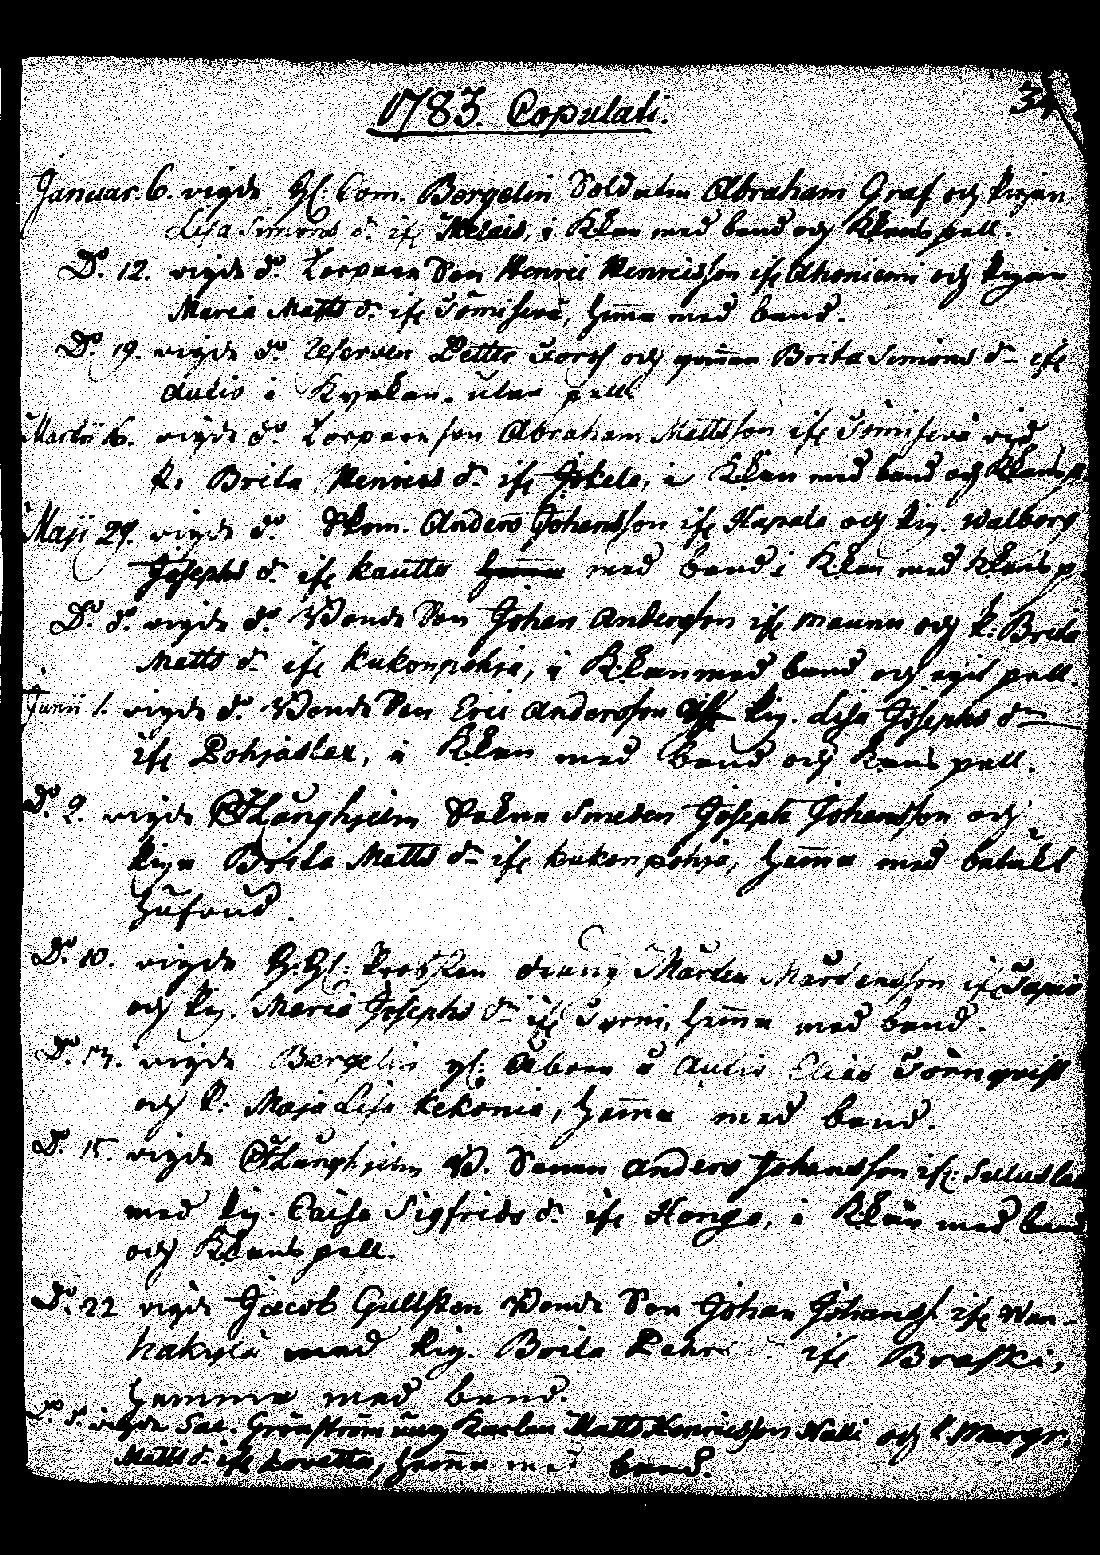 1783. Copulati. 34
Januar. 6. vigde Hl: Com. Bergelin Soldaten Abraham Graf och pigan
Lisa Simons dr. ifr , i Kkan med band och Kkans pell.
Do. 12. vigde do. Torpare Son Henric Henricsson ifr Ahoniemi och Pigan
Maria Matts dr ifr Tomiseva, hemma med band.
Do. 19. vigde do. Petter Fors och Brita Simons dr ifr
Aulis i Kyrkan utan pell
Martii 16. vigde do. Torpare son Abraham Mattsson ifr Tomiseva med
P. Brita Henrics dr. ifr Jokela, i Kkan med band och Kkans p.
Maji 29. vigde do. Anders Johansson ifr Hapala och Pig. Walborg
Josephs dr. ifr Kautto med band i Kkan med Kkans p.
Do. d. vigde do. Bonde Son Johan Andersson ifr Maunu och P. Brita
Matts dr ifr Kukonpohja, i Kkan med band och egit pell.
Junii 1. vigde do. Bonde Son Eric Andersson Pig. Lisa Josephs dr
ifr Pohjastex, i Kkan med band och Kkans pell.
Do. 9. vigde Ljunghjelm Sokne Smeden Joseph Johansson och
Pigan Brita Matts dr ifr Kukonpohja, hemma med betäkt
hufvud.
Do. 10. vigde H. Hl: Prosten dräng Mårten Mårtensson ifr
och Pig. Maria Josephs dr ifr Tyrni, hemma med band.
Do. 17. vigde Bergelin gl. Åboen å Aulis Elias Törnqvist
och P. Maja Lisa Kekonia, hemma med band.
Do. 15. vigde Ljunghjelm B. Sonen Anders Johansson ifr.
med Pig. Caisa Sigfrids dr. ifr Hongo, i Kkan med band
och Kkans pell.
Do. 22 vigde Jacob Gullsten Bonde Son Johan Johanss. ifr Wan-
hakylä med Pig. Brita Pehrs dr ifr Braski,
hemma med band.
Do. d. vigde Sac. Grönström ung Karlen Matts Henricsson Nalli och P. Margr.
Matts dr. ifr Loretta, hemma med band.